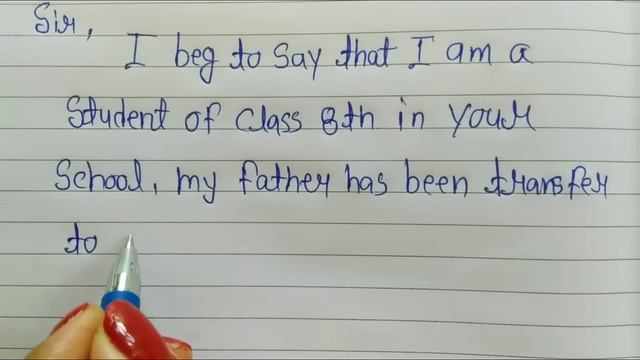 Sir,
I beg to say that I am a
Student of class 8th in your
School, my father has been transfer
to